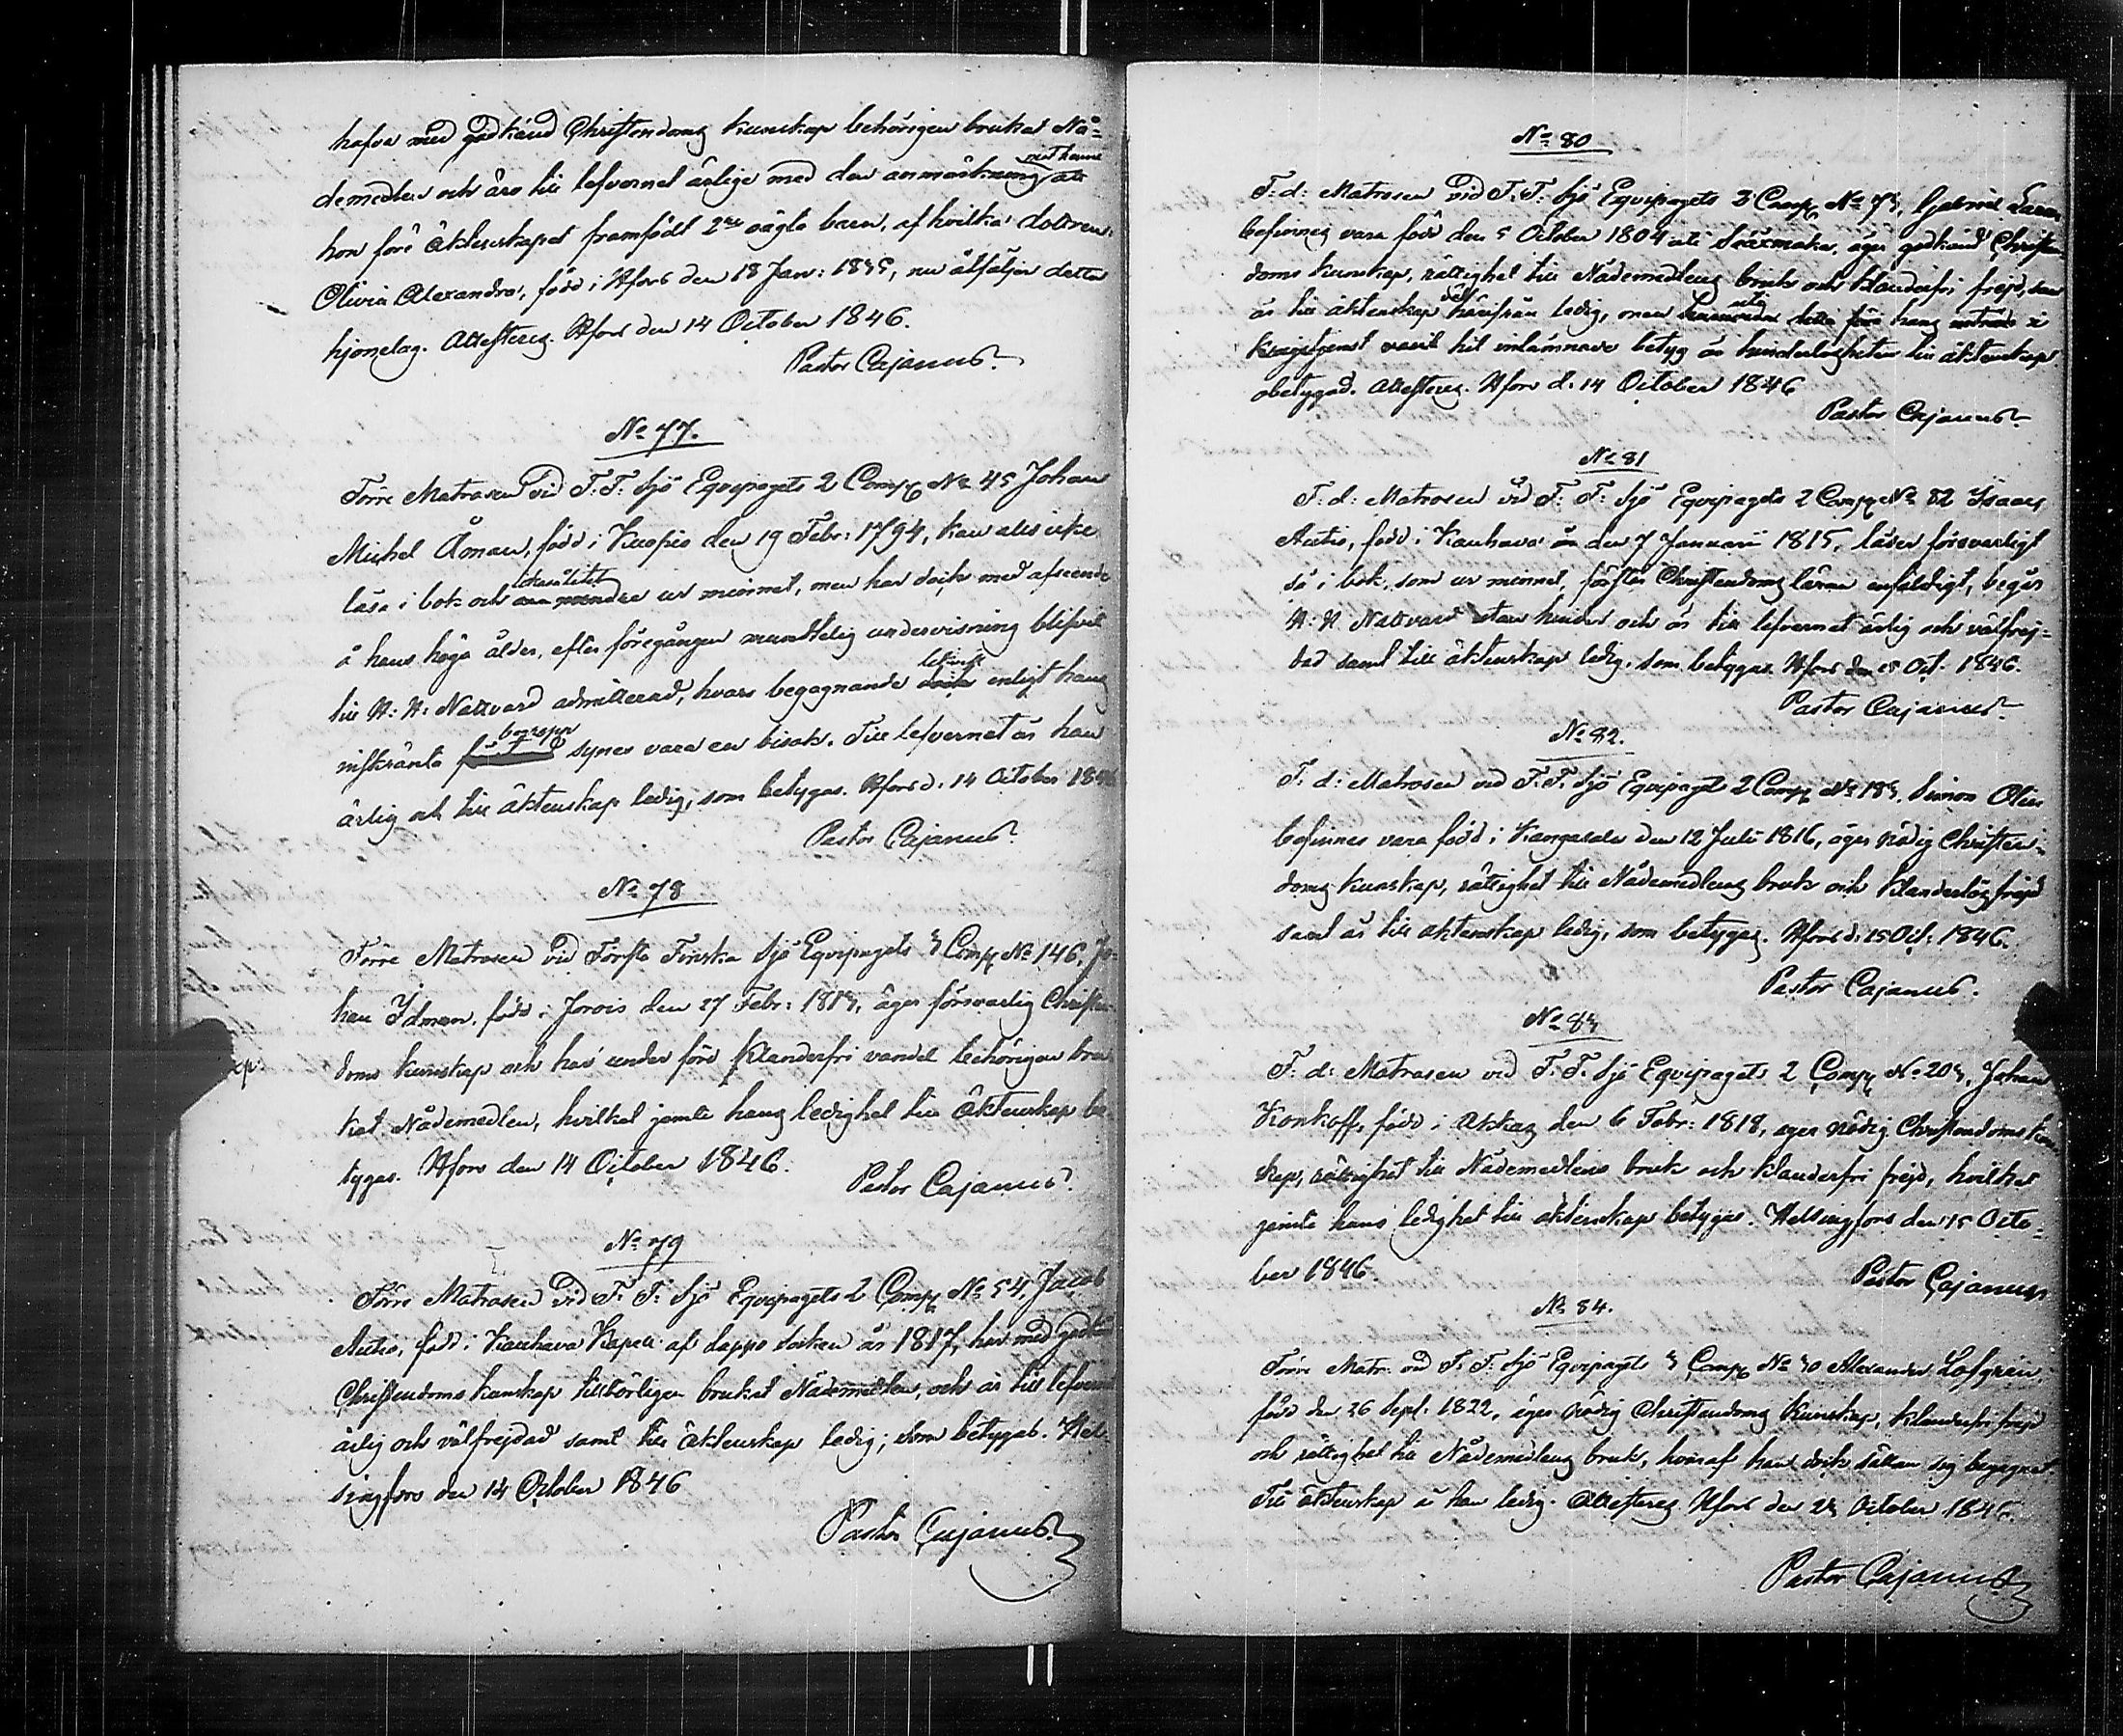 hafva med godkänd Christendoms kunskap behörigen brukat Nå-
demedlen och äro till lefvernet ärlige med den anmärkning att
hon före äktenskapet framfödt 2ne oägta barn, af hvilka dottren
Olivia Alexandra, född i Hfors den 18 Jan: 1835, nu åtföljer detta
hjonelag. Attesteras. Hfors den 14 October 1846.
Pastor Cajanus.
No 77.
Förre Matrosen vid F: F: Sjö Equipagets 2 Comp No 45 Johan
Michel Åman, född i Kuopio den 19 Febr: 1794, kan alls icke
läsa i bok och obetydligt ur minnet, men har dock med afseende
å hans höga ålder, efter föregången mundtelig undervisning blifvit
till H: H: Nattvard admitterad, hvars begagnande enligt hans
inskränta begrepp synes vara en bisak. Till lefvernet är han
ärlig och till äktenskap ledig, som betygas. Hfors d. 14 October 1846
Pastor Cajanus.
No 78
Förre Matrosen vid Första Finska Sjö Equipagets 3 Comp No 146, Jo-
han Idman, född i Jorois den 27 Febr: 1813, äger försvarlig Christen-
doms kunskap och har under förd klanderfri vandel behörigen bru-
kat Nådemedlen, hvilket jemte hans ledighet till äktenskap be-
tygas. Hfors den 14 October 1846.
Pastor Cajanus.
No 79
Förre Matrosen vid F: F: Sjö Equipagets 2 Comp No 54, Jacob
Autio, född i Kauhava Kapell af Lappo Socken år 1817, har med godkänd
Christendoms kunskap tillbörligen brukat Nådemedlen, och är till lefvernet
ärlig och välfrejdad samt till äktenskap ledig; som betygas. Hel-
singfors den 14 October 1846
Pastor Cajanus.
No 80
F: d: Matrosen vid F: F: Sjö Equipagets 3 Comp No 73, Gabriel
befinnes vara född den 5 October 1804 uti Säxmäki, äger godkänd Christen-
doms kunskap, rättighet till Nådemedlens bruk och klanderfri frejd, samt
är till äktenskap härifrån ledig, men hans i
krigstjenst varit hit inlämnade betyg är hinderlösheten till äktenskap
obetygad. Attesteras. Hfors d. 14 October 1846
Pastor Cajanus.
No 81
F: d: Matrosen vid F: F: Sjö Equipagets 2 Comp No 82 Isaac
Autio, född i Kauhava den 7 Januarii 1815, läser försvarligt
så i bok, som ur minnet, förstår Christendoms läran enfaldigt, begår
H: H: Nattvard utan hinder och är till lefvernet ärlig och välfrej-
dad samt till äktenskap ledig, som betygas. Hfors den 15 Oct. 1846.
Pastor Cajanus.
No 82.
F: d: Matrosen vid F: F: Sjö Equipagets 2 Comp No 183, Simon Olin
befinnes vara född i Kangasala den 12 Juli 1816, äger nödig Christen-
doms kunskap, rättighet till Nådemedlens bruk och klanderlös frejd
samt är till äktenskap ledig, som betygas. Hfors d. 15 Oct: 1846.
Pastor Cajanus.
No 83
F: d: Matrosen vid F: F: Sjö Equipagets 2 Comp No 203, Johan
Konkoff, född i Akkas den 6 Febr: 1818, eger nödig Christendoms kun-
skap, rättighet till Nådemedlens bruk och klanderfri frejd, hvilket
jemte hans ledighet till äktenskap betygas. Helsingfors den 15 Octo-
ber 1846
Pastor Cajanus
No 84.
Förre Matr. vid F: F: Sjö Equipagets 3 Comp No 30 Alexander Löfgren,
född den 26 Sept. 1822, äger nödig Christendoms kunskap, klanderfri frejd
och rättighet till Nådemedlens bruk, hvaraf han dock sällan sig begagnat.
Till äktenskap är han ledig. Attesteras Hfors den 23 October 1846.
Pastor Cajanus